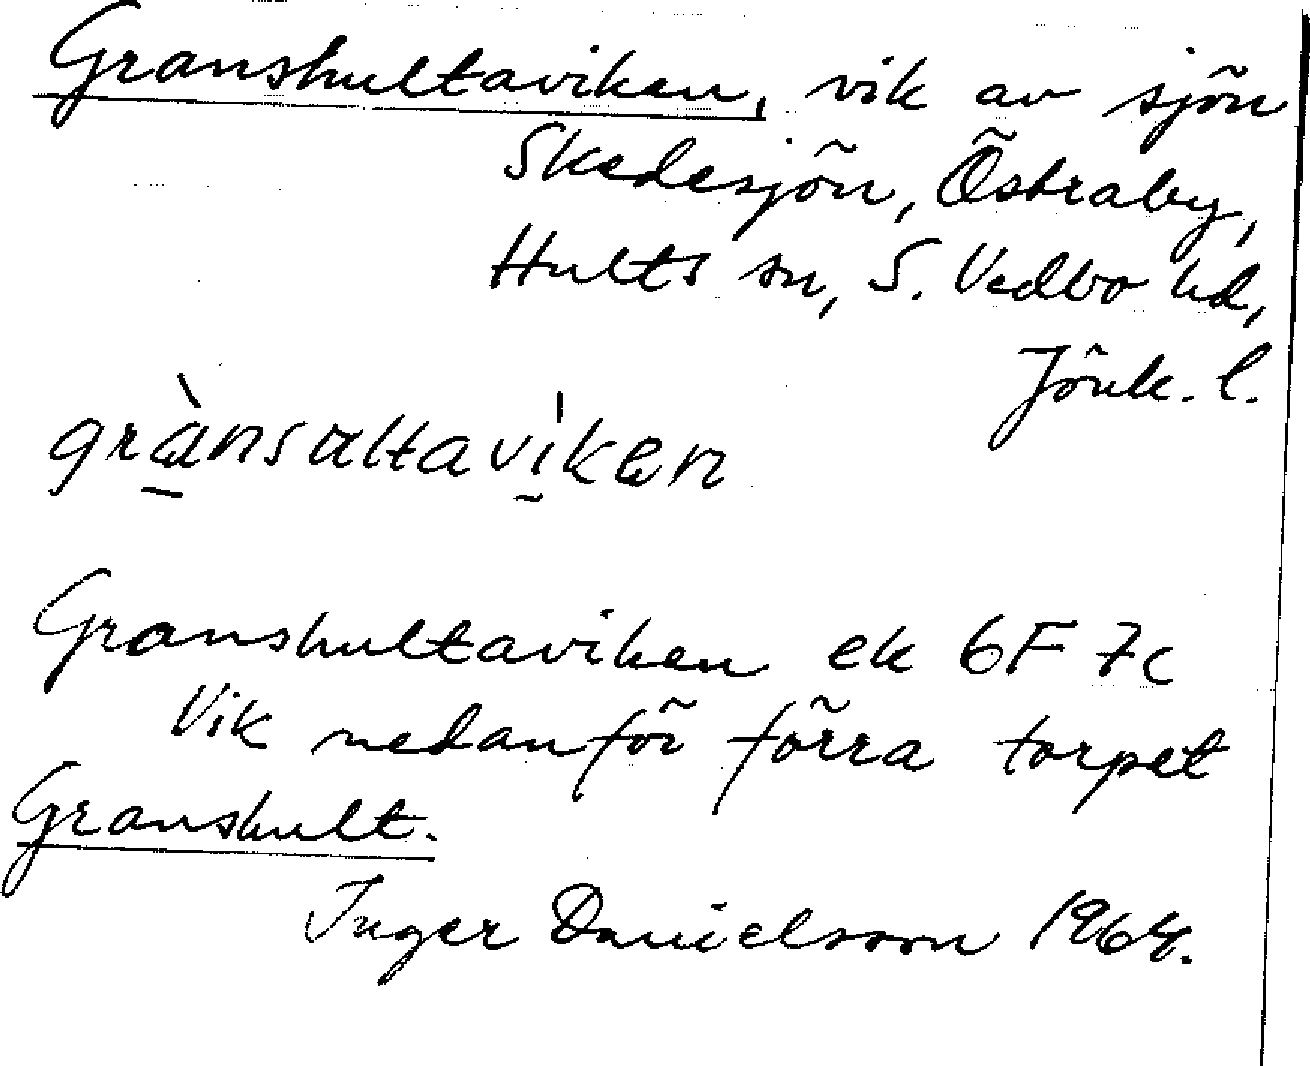 Granshultaviken, vik av sjön
Skedesjön, Östraby,
Hults sn, S. Vedbo hd,
Jönk. l.
grànsaltavìken
Granshultaviken ek 6F 7c
Vik nedanför förra torpet
Granshult.
Inger Danielsson 1964.